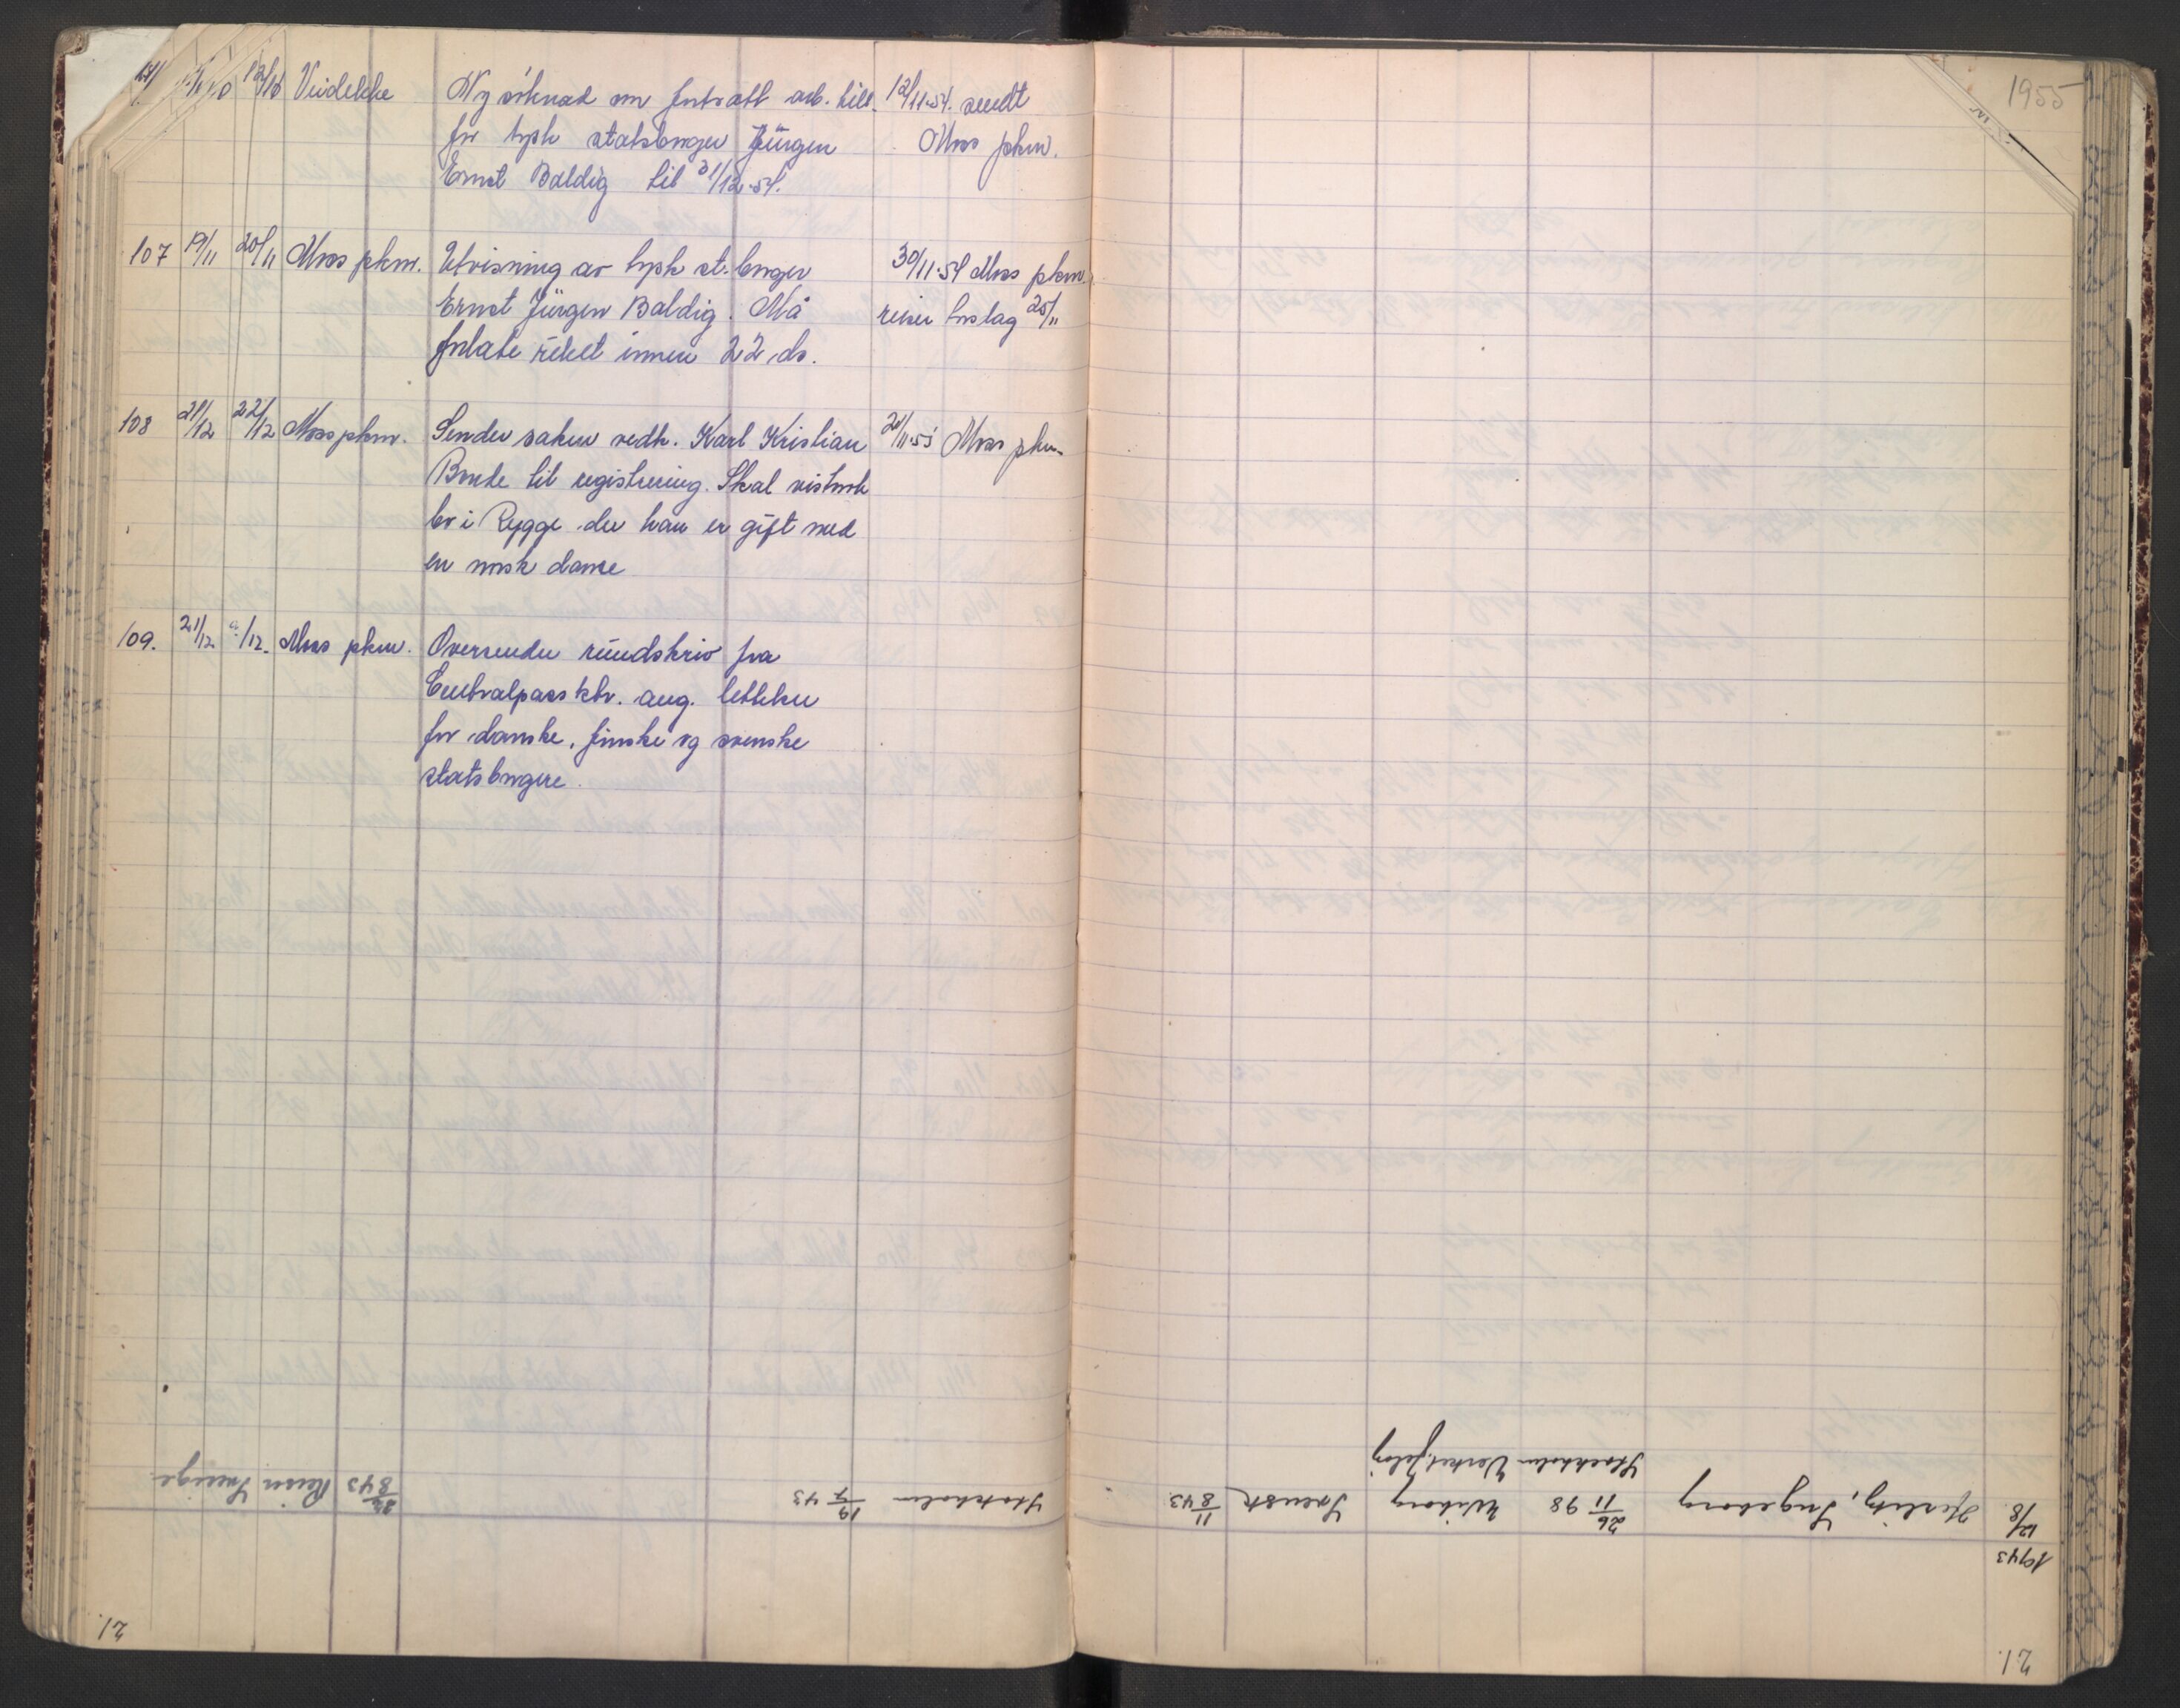 12/10 Veidekke Ny søknad om fortsatt arb. till. 12/11-54. sendt
for tysk statsborger Jürgen Moss pkm.
Ernst Baldig til 31/12-54.
107 19/11 20/11 Moss pkm. Utvisning av tysk st.borger 30/11-54 Moss pkm.
Ernst Jürgen Baldig. Må reiser torsdag 25/11
forlate riket innen 22. ds.
108 21/12 22/12 Moss pkm. Sender saken vedk. Karl Kristian Moss pkm.
til registrering. Skal vistnok
bo i Rygge der han er gift med
en norsk dame
109. 21/12 /12. Moss pkm. Oversender rundskriv fra
Centralpassktr. ang. lettelser
for danske, finske og svenske
statsborgere.
1955
1943
12/8 Herlitz, Ingeborg 26/11 98 Wiborg Svensk 11/8 43. Stockholm 19/7 43 24/8 43 Reisn Sverige
Stockholm Verket, Jeløy
21.
21.